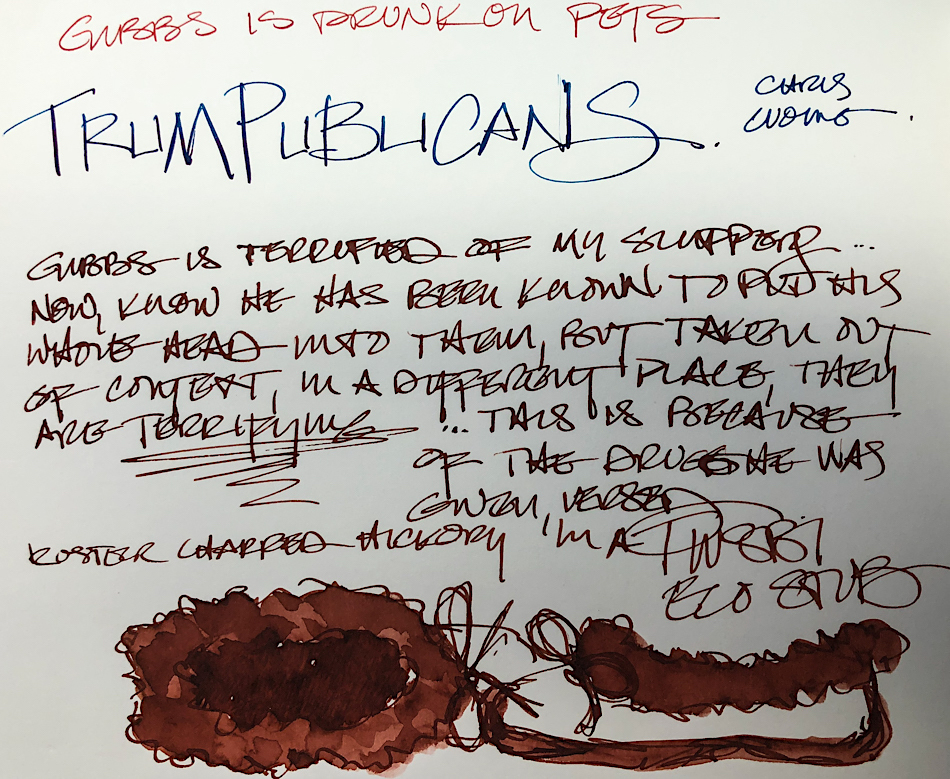 GUBBS IS DRUNK ON PETS
TRUMPUBLICANS.
CHRIS
CUOMO.
GUBBS IS TERRIFIED OF MY SLIPPER...
NOW, KNOW HE HAS BEEN KNOWN TO PUT HIS
WHOLE HEAD INTO THEM, BUT TAKEN OUT
OF CONTEXT, IN A DIFFERENT PLACE, THEY
ARE TERRIFYING ... THIS IS BECAUSE
OF THE DRUGS HE WAS
GIVEN, VERSED
KOSTER CHARRED HICKORY IN A TWSBI
ECO STUB